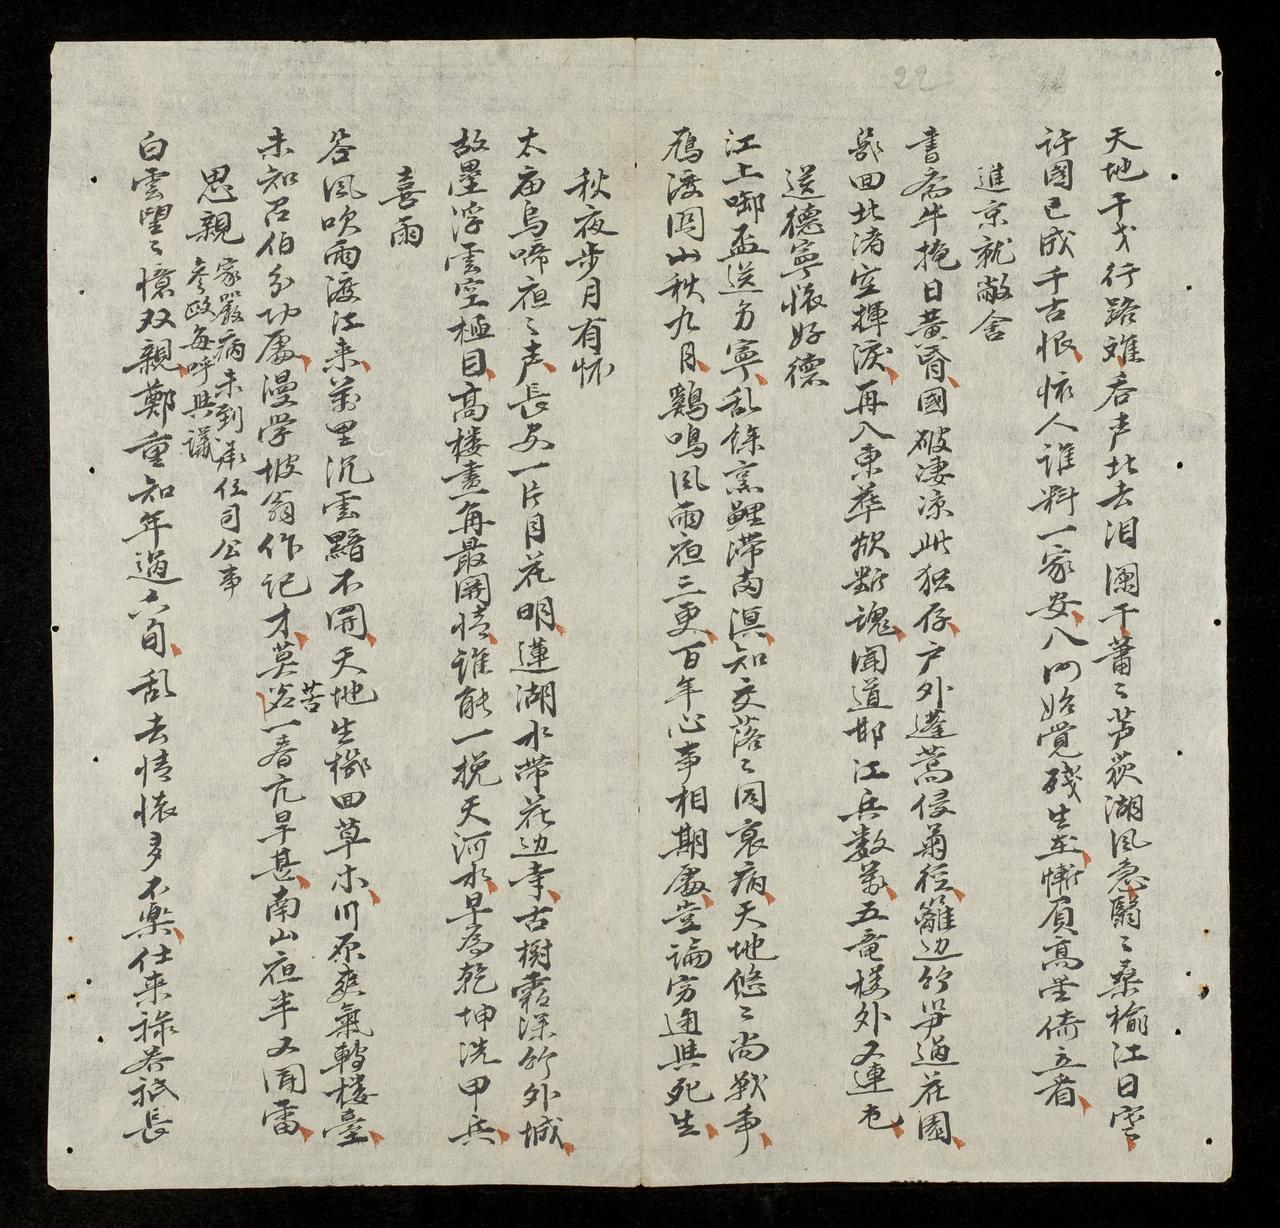 22
天地干戈行路难吞声北去泪阑干蕭〻芦荻湖风急翳〻桑榆江日寒
許國已成千古恨依人谁料一家安八口始覚残生在慚負高堂倚立看
進京就敝舍
書斋半掩日黄昏國破凄凉此独存户外蓬蒿侵菊徑籬边竹笋過花園
莭回北渚空揮淚再入東華欲断魂闻道邯江兵数万五竜楼外又連屯
送德寧懐好德
江上啣盃送另寧乱餘烹鯉滞南溟知交落〻同衰病天地悠〻尚战争
雁渡関山秋九月鷄鳴风雨夜三更百年心事相期處岂論穷通與死生
秋夜步月有怀
太庙烏啼夜〻声長安一片月花明蓮湖水带花边幸古樹霜深竹外城
故壘浮雲空極目高楼畫角最関情谁能一挽天河水早為乾坤洗甲兵
喜雨
谷风吹雨渡江来萬里沉雲黯不開天地生機回草木川原爽氣轉楼臺
未知召伯分功處漫学坡翁作记才莫咨苦一春亢旱甚南山夜半又闻雷
思親家嚴病未到承任司公事
參政每呼與議
白雲望〻憶双親鄭重知年過六旬乱去情懐多不樂仕来祿养祇長